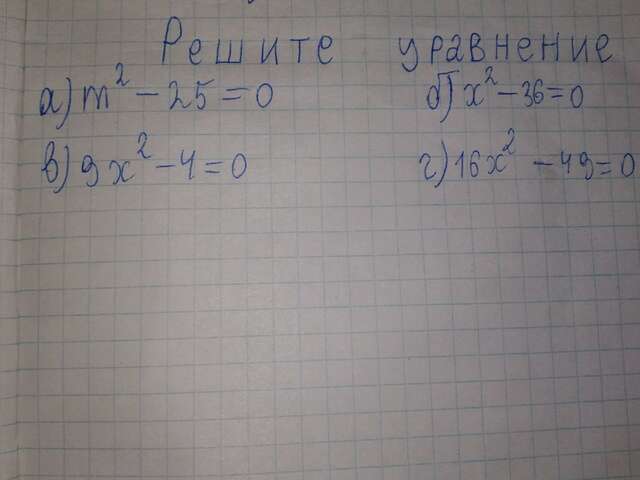 Решите уравнение
а) m² - 25 = 0 б) x² - 36 = 0
в) 9x² - 4 = 0 г) 16x² - 49 = 0